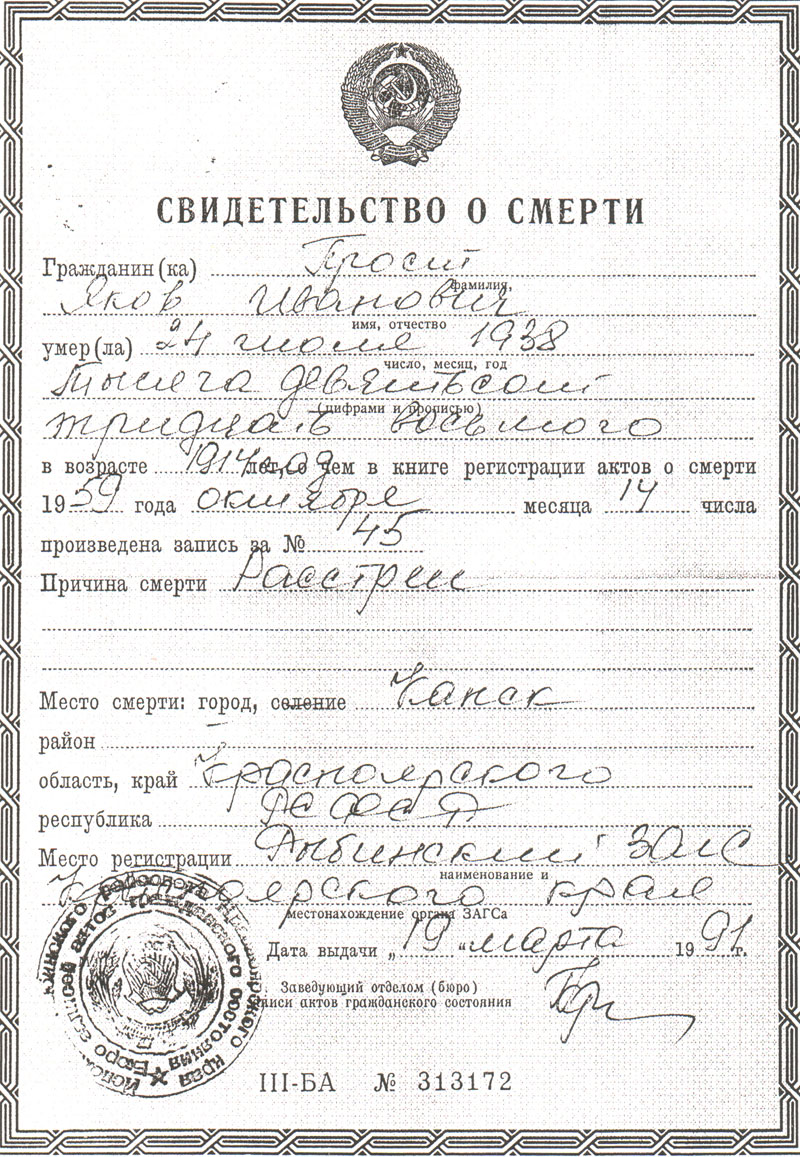 СВИДЕТЕЛЬСТВО О СМЕРТИ
Гражданин(ка)
фамилия,
Яков Иванович
имя, отчество
умер(ла) 24 июля 1938
число, месяц, год
тысяча девятьсот
(цифрами и прописью)
тридцать восьмого
в возрасте 1914 год лет, о чем в книге регистрации актов о смерти
1959 года октября месяца 14 числа
произведена запись за № 45
Причина смерти Расстрел
Место смерти: город, селение Канск
район –
область, край Красноярского
республика РСФСР
Место регистрации Рыбинский ЗАГС
наименование и
Красноярского края
местонахождение органа ЗАГСа
Дата выдачи „19" марта 1991 г.
Заведующий отделом (бюро)
записи актов гражданского состояния
III-БА № 313172